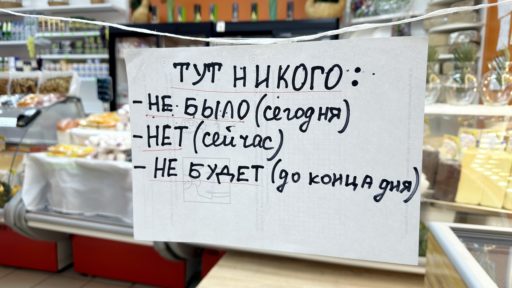 ТУТ НИКОГО:
- НЕ БЫЛО (сегодня)
- НЕТ (сейчас)
- НЕ БУДЕТ (до конца дня)